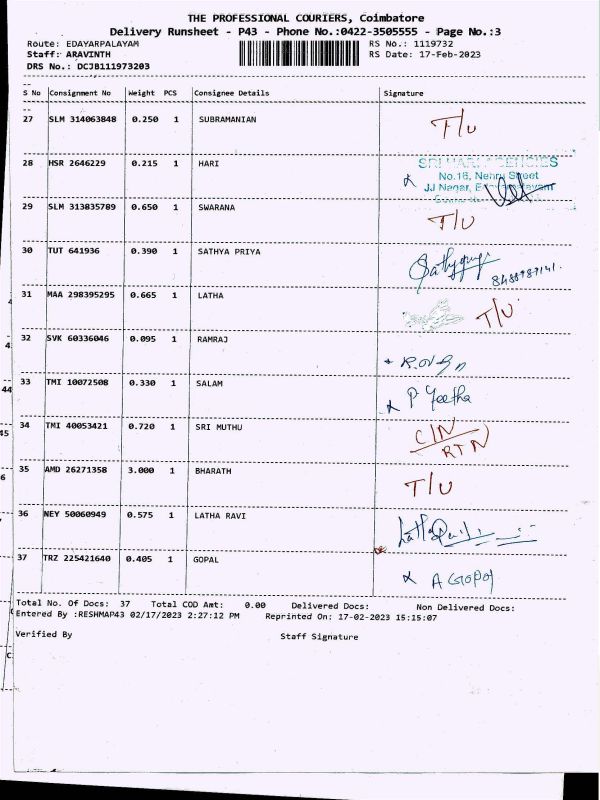 THE PROFESSIONAL COURIERS, Coimbatore
Delivery Runsheet - P43 - Phone No.:0422-3505555 - Page No.:3
Route: EDAYARPALAYAM RS No.: 1119732
Staff: ARAVINTH RS Date: 17-Feb-2023
DRS No.: DCJB111973203
S No Consignment No Weight PCS Consignee Details Signature
27 SLM 314063848 0.250 1 SUBRAMANIAN T/U
28 HSR 2646229 0.215 1 HARI
SRI HARI AGENCIES
No.16, Nehru Street
JJ Nagar,
29 SLM 313835789 0.650 1 SWARANA T/U
30 TUT 641936 0.390 1 SATHYA PRIYA
31 MAA 298395295 0.665 1 LATHA T/U
32 SVK 60336046 0.095 1 RAMRAJ
33 TMI 10072508 0.330 1 SALAM P Geetha
34 TMI 40053421 0.720 1 SRI MUTHU C/N
RTN
35 AMD 26271358 3.000 1 BHARATH T/U
36 NEY 50060949 0.575 1 LATHA RAVI
37 TRZ 225421640 0.405 1 GOPAL A GOPAL
Total No. Of Docs: 37 Total COD Amt: 0.00 Delivered Docs: Non Delivered Docs:
Entered By :RESHMAP43 02/17/2023 2:27:12 PM Reprinted On: 17-02-2023 15:15:07
Verified By Staff Signature